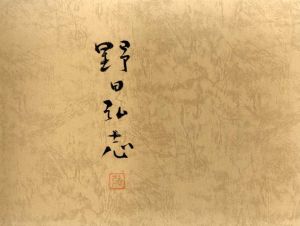 野田弘志